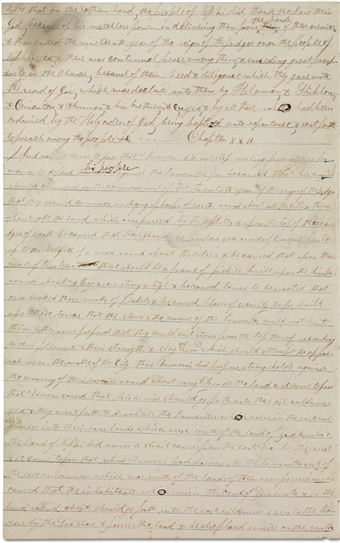 254 that on the other hand, the people of Nephi did thank the Lord their
God because of his matchless power in delivering them from the hands of their enemies
& thus ended the nineteenth year of the reign of the judges over the people of
Nephi yea & there was continual peace among them & exceding great prosper
ity in the Church because of their heed & diligence which they gave unto
the word of God which was declared unto them by Helaman & Shiblon
& Corianton & Ammon & his brethren &c yea & by all those who had been
ordained by the Holy order of God, being baptized unto repentance & sent forth
to preach among the people &c Chapter XXII
And now it came to pass that Moroni did not stop making preparations for
war or to defend his people against the Lamanites for he caused that his armies
should commence in the commencement of the twentieth year of the reign of the Judges
that they should commence in diging up heaps of earth round about all the cities
throughout all the land which was possessed by the Nephites & upon the top of these rid
ges of earth he caused that there should be timbers yea works of timbers built
up to the heighth of a man round about the cities & he caused that upon those
works of timbers there should be a frame of pickets built upon the timbers
round about & they were strong & high & he caused towers to be erected that
over looked those works of pickets & he caused places of security to be built
upon those towers that the stones & the arrows of the Lamanites could not hurt
them & they were prepared that they could cast stones from the top thereof according
to their pleasure & their strength & slay him which should attempt to approach
near the walls of the City thus Moroni did prepare strong holds against
the coming of their enemies round about every City in all the land & it came to pass
that Moroni caused that his armies should go forth into the east wilderness
yea & they went forth & drove all the Lamanites who were in the east wil
derness into their own lands which were south of the land of Zarahemla &
the land of Nephi did run in a strait course from the east Sea to the west
& it came to pass that when Moroni had driven all the Lamanites out of
the east wilderness which was north of the lands of their own possessions he
caused that the inhabitants who were in the land of Zarahemla & in the
land round about should go forth into the east wilderness even to the bor
ders by the Sea shore & possess the land & he also placed armies on the south